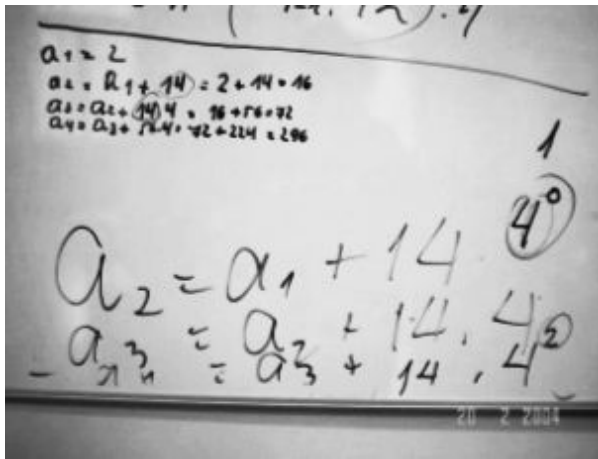 a₁ = 2
a₂ = a₁ + 14 = 2 + 14 = 16
a₃ = a₂ + 14·4 = 16 + 56 = 72
a₄ = a₃ + 56·4 = 72 + 224 = 296
1
4⁰
a₂ = a₁ + 14
a₃ = a₂ + 14 · 4
= a₃ + 14 · 4²
20 2 2004